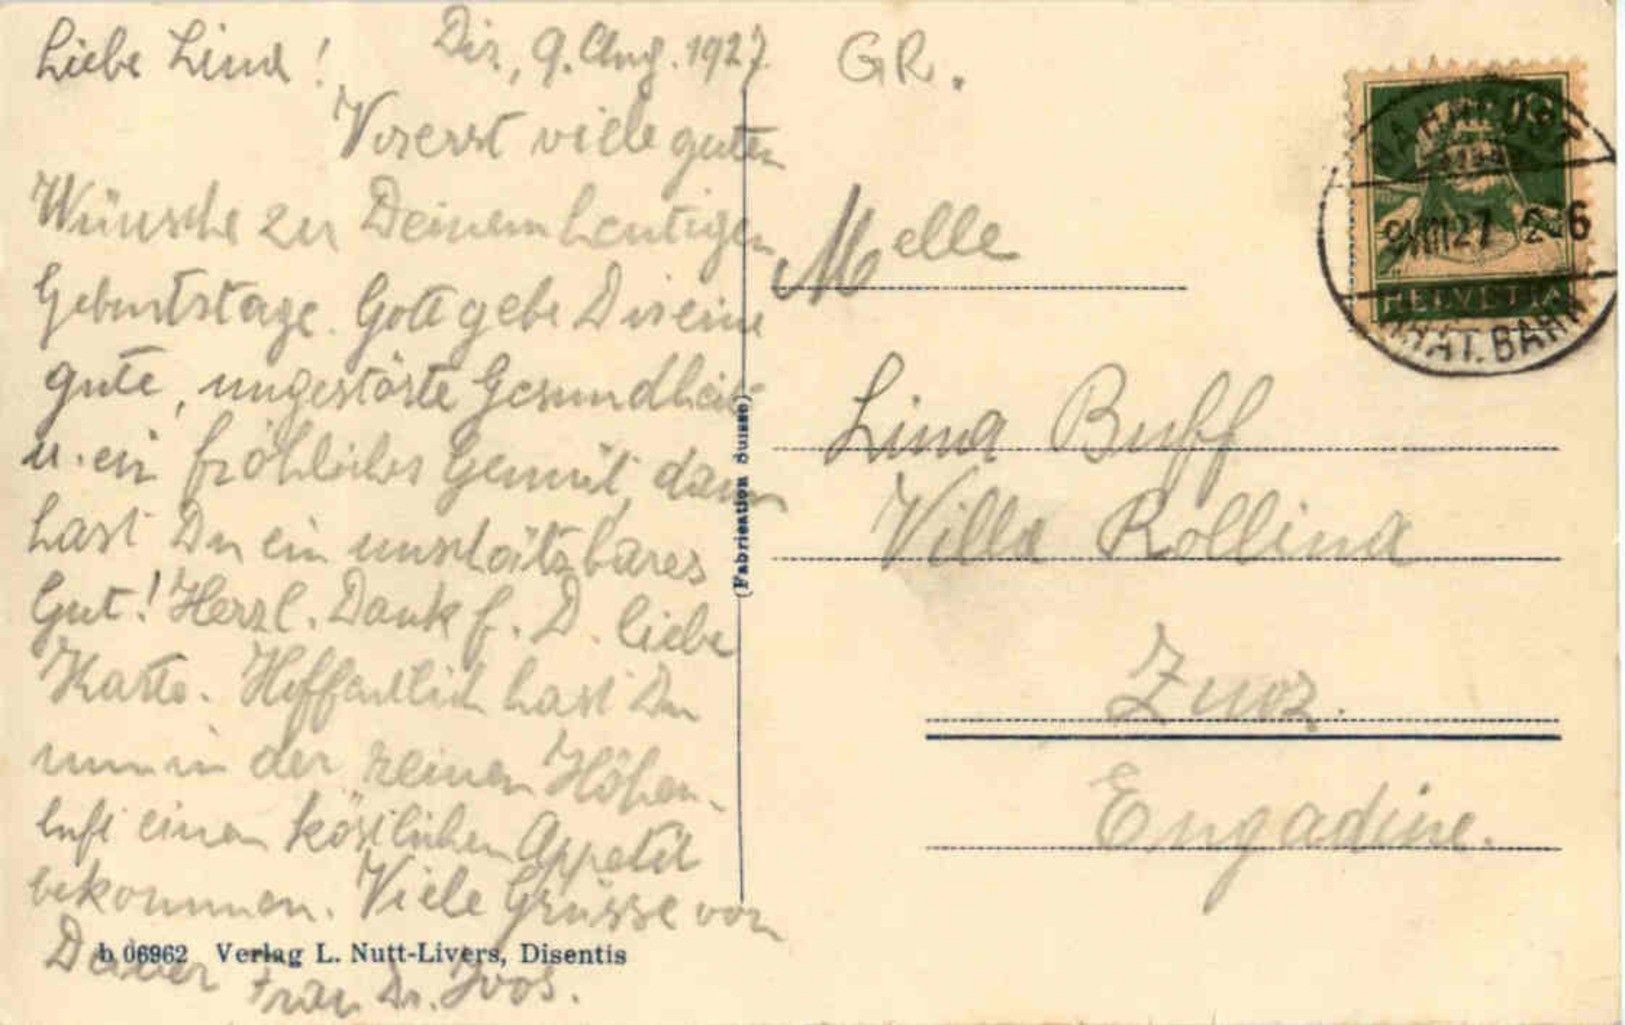 Liebe Lina! Dis., 9. Aug. 1927
Vorerst viele guten
Wünsche zu Deinem heutigen
Geburtstage. Gott gebe Dir eine
gute, ungestörte Gesundheit
u. ein fröhliches Gemüt, dann
hast Du ein unschätzbares
Gut! Herzl. Dank f. D. liebe
Karte. Hoffentlich hast Du
nun in der reinen Höhen-
luft einen köstlichen Appetit
bekommen. Viele Grüsse von
Deiner Frau Dr. Joos.
b 06962 Verlag L. Nutt-Livers, Disentis
(Fabrication Suisse)
GR.
Melle
Lina Buff
Villa Rollina
Zuoz.
Engadine.
BAHNPOST
9.VIII.27
HELVETIA
RHÄT. BAHN